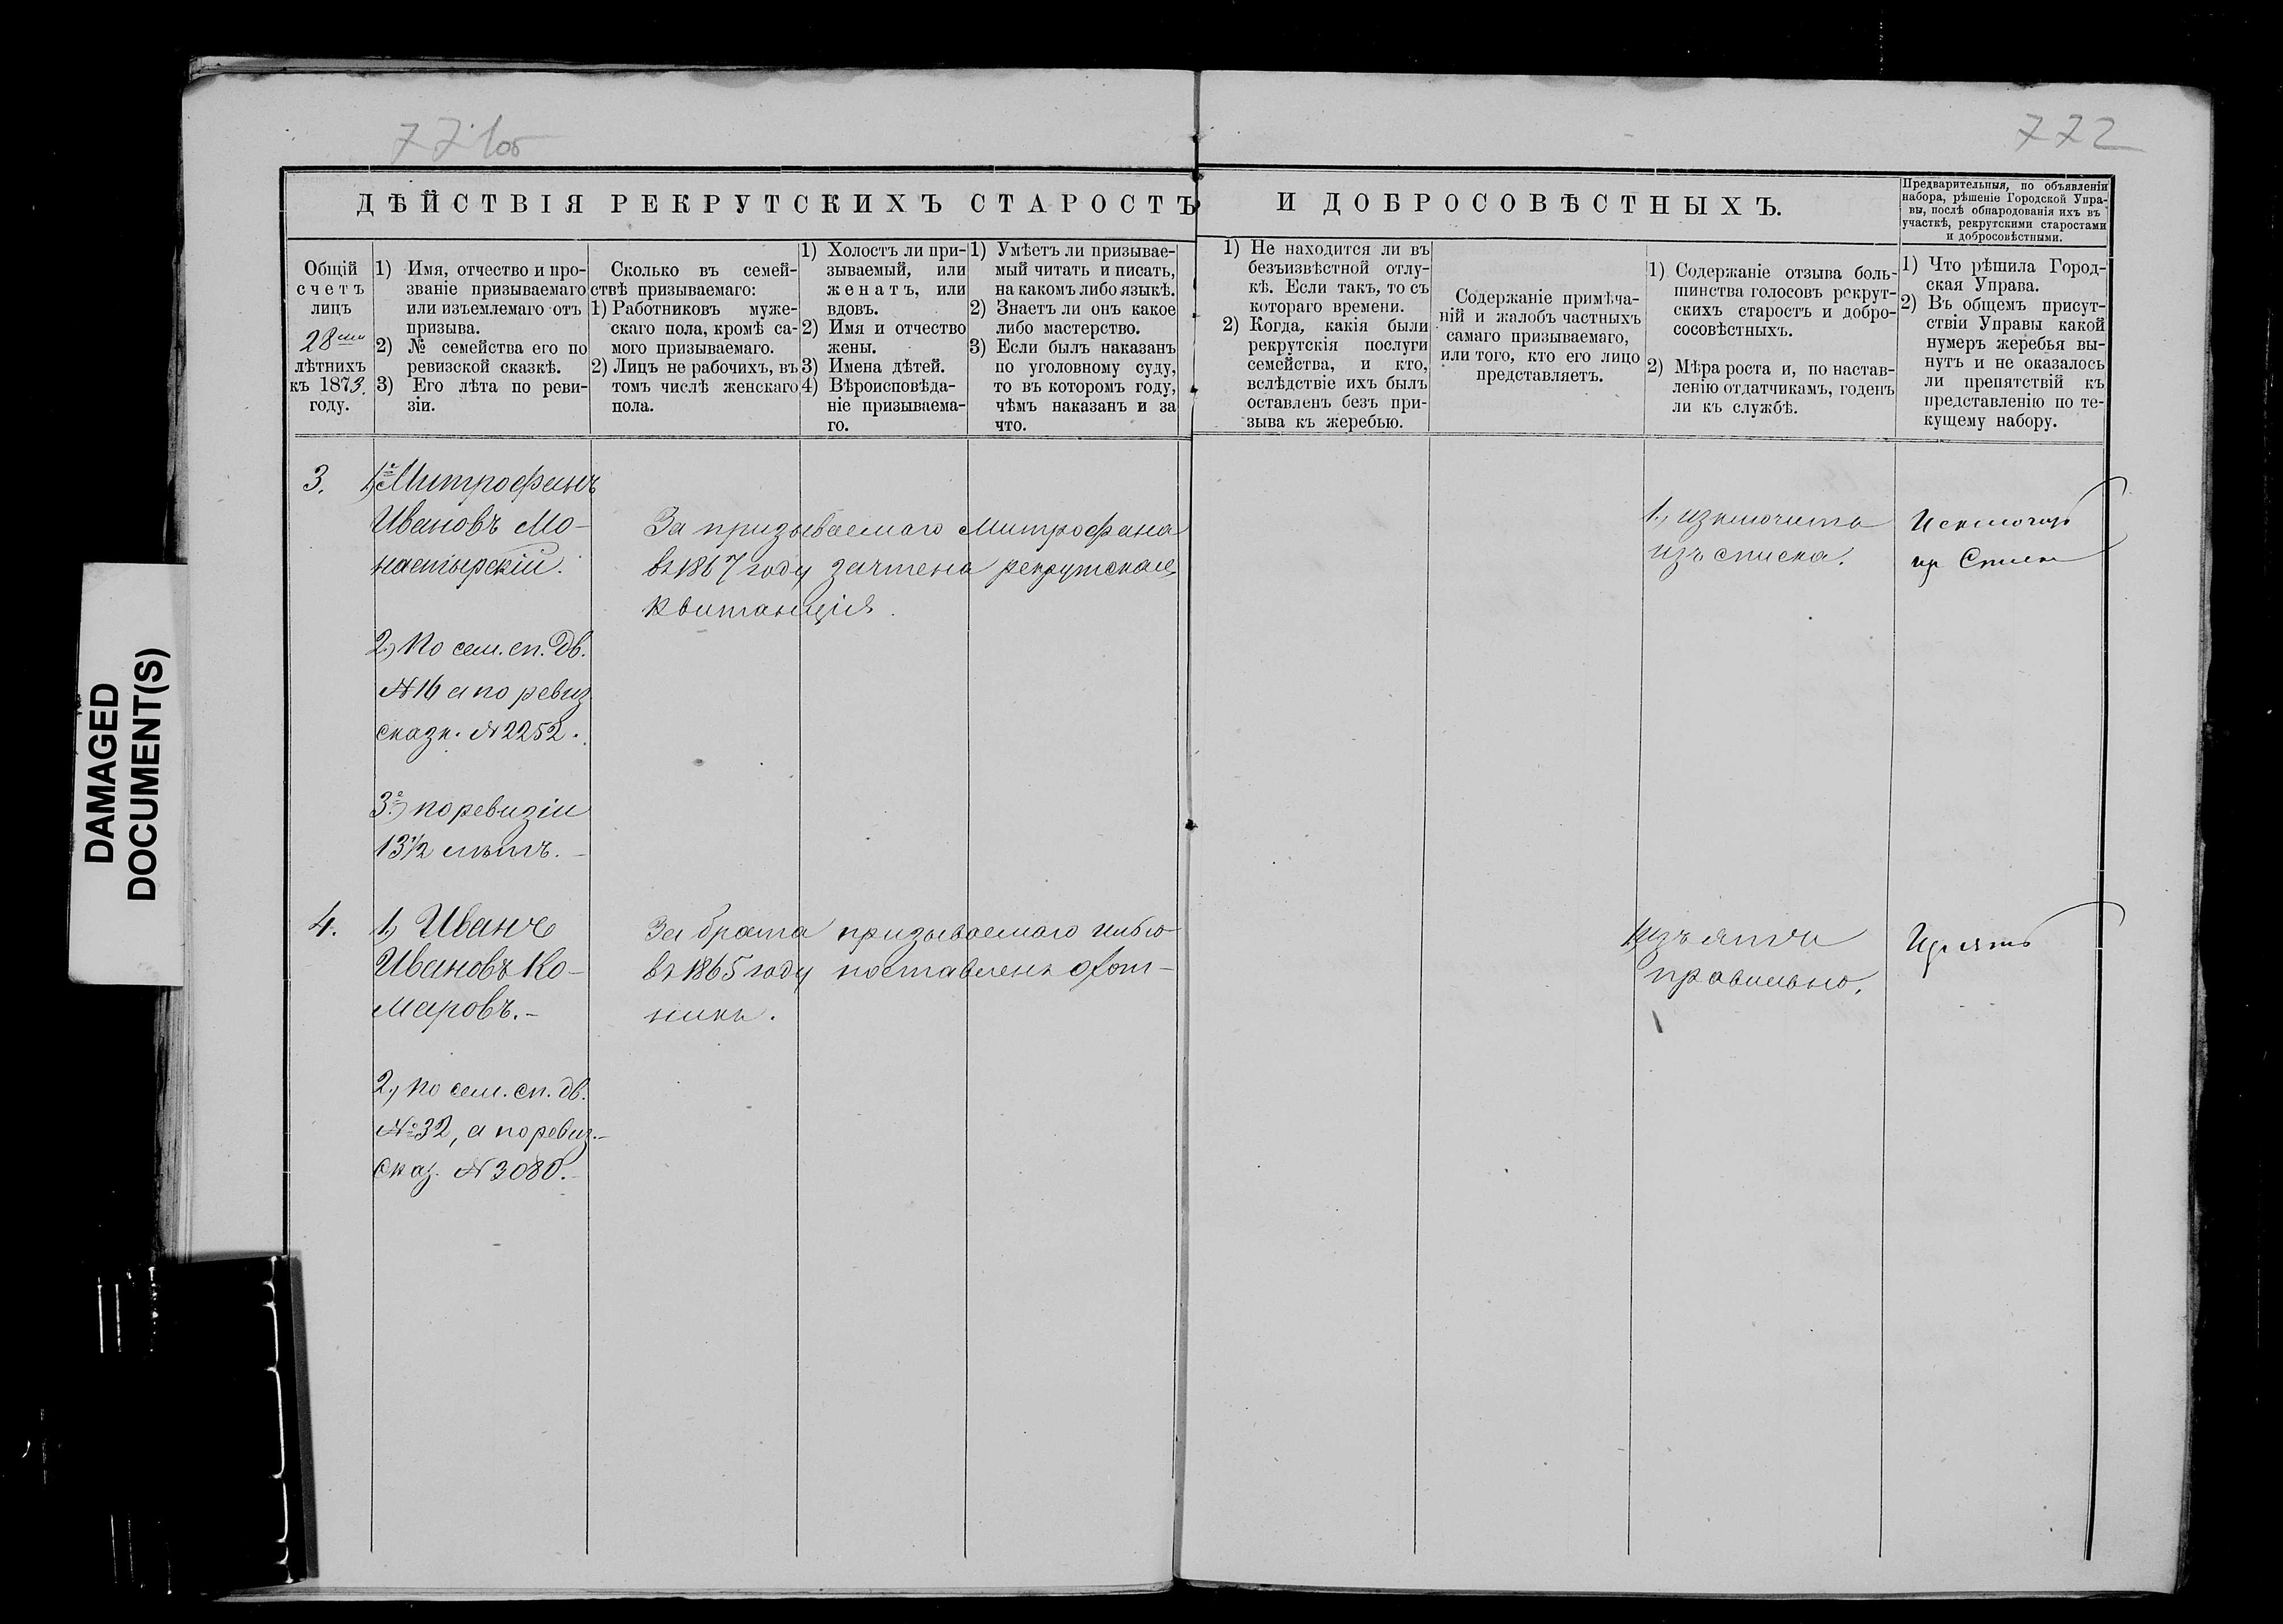 771об
772
ДѢЙСТВІЯ РЕКРУТСКИХЪ СТАРОСТЪ И ДОБРОСОВѢСТНЫХЪ.
Предварительныя, по объявленіи
набора, рѣшеніе Городской Упра-
вы, послѣ обнародованія ихъ въ
участкѣ, рекрутскими старостами
и добросовѣстными.
Общій
счетъ
лицъ
28ми
лѣтнихъ
къ 1873
году.
1) Имя, отчество и про-
званіе призываемаго
или изъемлемаго отъ
призыва.
2) № семейства его по
ревизской сказкѣ.
3) Его лѣта по реви-
зіи.
Сколько въ семей-
ствѣ призываемаго:
1) Работниковъ муже-
скаго пола, кромѣ са-
мого призываемаго.
2) Лицъ не рабочихъ, въ
томъ числѣ женскаго
пола.
1) Холостъ ли при-
зываемый, или
женатъ, или
вдовъ.
2) Имя и отчество
жены.
3) Имена дѣтей.
4) Вѣроисповѣда-
ніе призываема-
го.
1) Умѣетъ ли призывае-
мый читать и писать,
на какомъ либо языкѣ.
2) Знаетъ ли онъ какое
либо мастерство.
3) Если былъ наказанъ
по уголовному суду,
то въ которомъ году,
чѣмъ наказанъ и за
что.
1) Не находится ли въ
безъизвѣстной отлу-
кѣ. Если такъ, то съ
котораго времени.
2) Когда, какія были
рекрутскія послуги
семейства, и кто,
вслѣдствіе ихъ былъ
оставленъ безъ при-
зыва къ жеребью.
Содержаніе примѣча-
ній и жалобъ частныхъ
самаго призываемаго,
или того, кто его лицо
представляетъ.
1) Содержаніе отзыва боль-
шинства голосовъ рекрут-
скихъ старостъ и добро-
совѣстныхъ.
2) Мѣра роста и, по настав-
ленію отдатчикамъ, годенъ
ли къ службѣ.
1) Что рѣшила Город-
ская Управа.
2) Въ общемъ присут-
ствіи Управы какой
нумеръ жеребья вы-
нутъ и не оказалось
ли препятствій къ
представленію по те-
кущему набору.
3.
1е) Митрофанъ
Ивановъ Мо-
настырскій.
2) По сем. сп. Дв.
№16 а по ревиз.
сказк. №2252.
3е) по ревизіи
13½ лѣтъ.
За призываемаго Митрофана
въ 1867 году зачтена рекрутская
квитанція.
1) изключить
изъ списка.
Исключить
из Списка
4.
1) Иванъ
Ивановъ Ко-
маровъ.
2) по сем. сп. дв.
№32, а по ревиз.
Сказ. №3080.
За брата призываемаго
въ 1865 году поставленъ охот-
никъ.
1) изъятъ
правильно.
Изъять
DAMAGED
DOCUMENT(S)